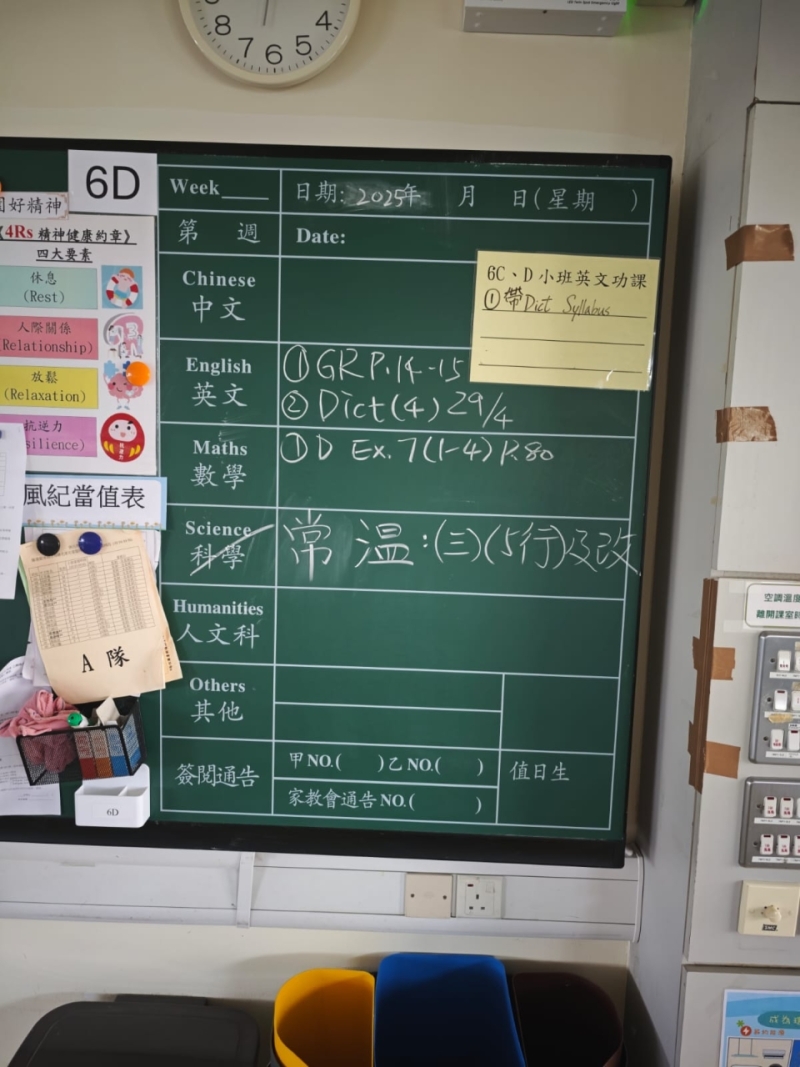 8 7 6 5 4
6D
好精神
《4Rs 精神健康約章》
四大要素
休息
(Rest)
人際關係
(Relationship)
放鬆
(Relaxation)
抗逆力
silience)
風紀當值表
A 隊
6D
Week____ 日期: 2025年 月 日(星期 )
第 週 Date:
Chinese
中文
6C、D 小班英文功課
① 帶Dict Syllabus
English
英文
① GR P.14-15
② Dict(4) 29/4
Maths
數學
① D Ex.7(1-4) P.80
Science
科學
常溫:(三)(5行)及改
Humanities
人文科
Others
其他
簽閱通告
甲NO.( )乙NO.( )
家教會通告NO.( )
值日生
空調溫度
離開課室時